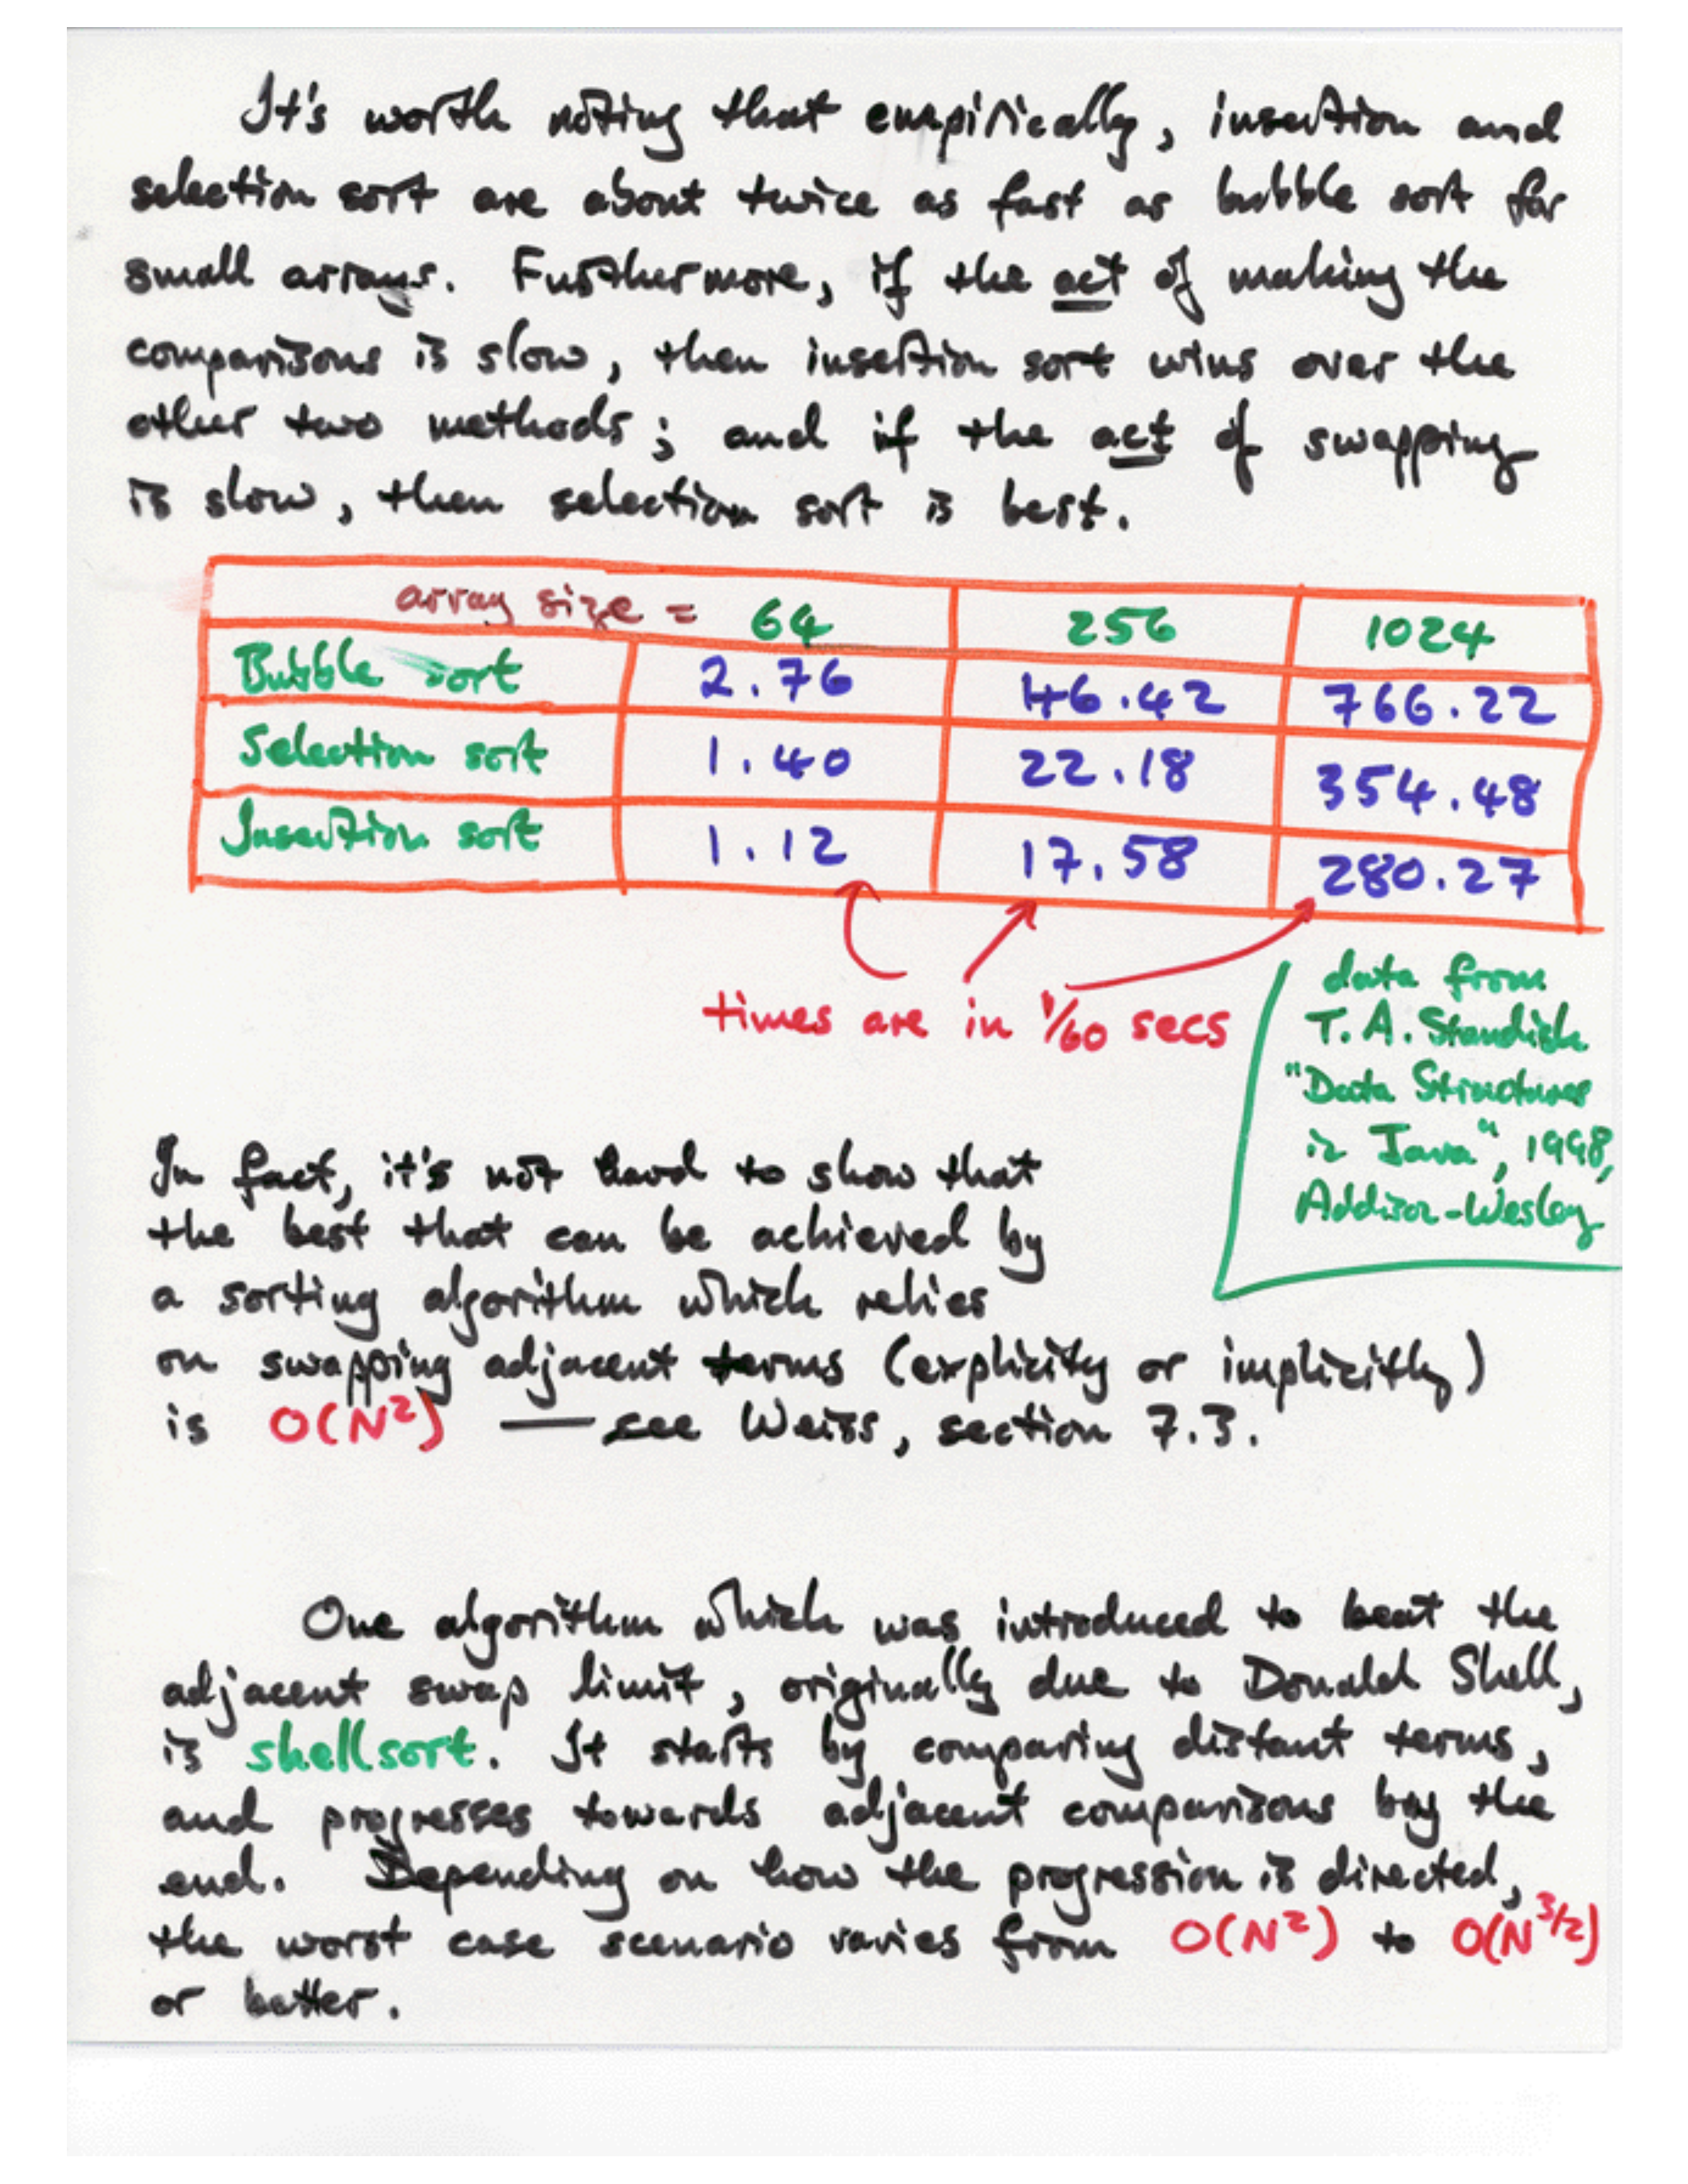 It's worth noting that empirically, insertion and
selection sort are about twice as fast as bubble sort for
small arrays. Furthermore, if the act of making the
comparisons is slow, then insertion sort wins over the
other two methods; and if the act of swapping
is slow, then selection sort is best.
array size = 64 256 1024
Bubble sort 2.76 46.42 766.22
Selection sort 1.40 22.18 354.48
Insertion sort 1.12 17.58 280.27
times are in 1/60 secs
data from
T. A. Standish
"Data Structures
in Java", 1998,
Addison-Wesley
In fact, it's not hard to show that
the best that can be achieved by
a sorting algorithm which relies
on swapping adjacent terms (explicity or implicitly)
is O(N²) — see Weiss, section 7.3.
One algorithm which was introduced to beat the
adjacent swap limit, originally due to Donald Shell,
is shellsort. It starts by comparing distant terms,
and progresses towards adjacent comparisons by the
end. Depending on how the progression is directed,
the worst case scenario varies from O(N²) to O(N^3/2)
or better.